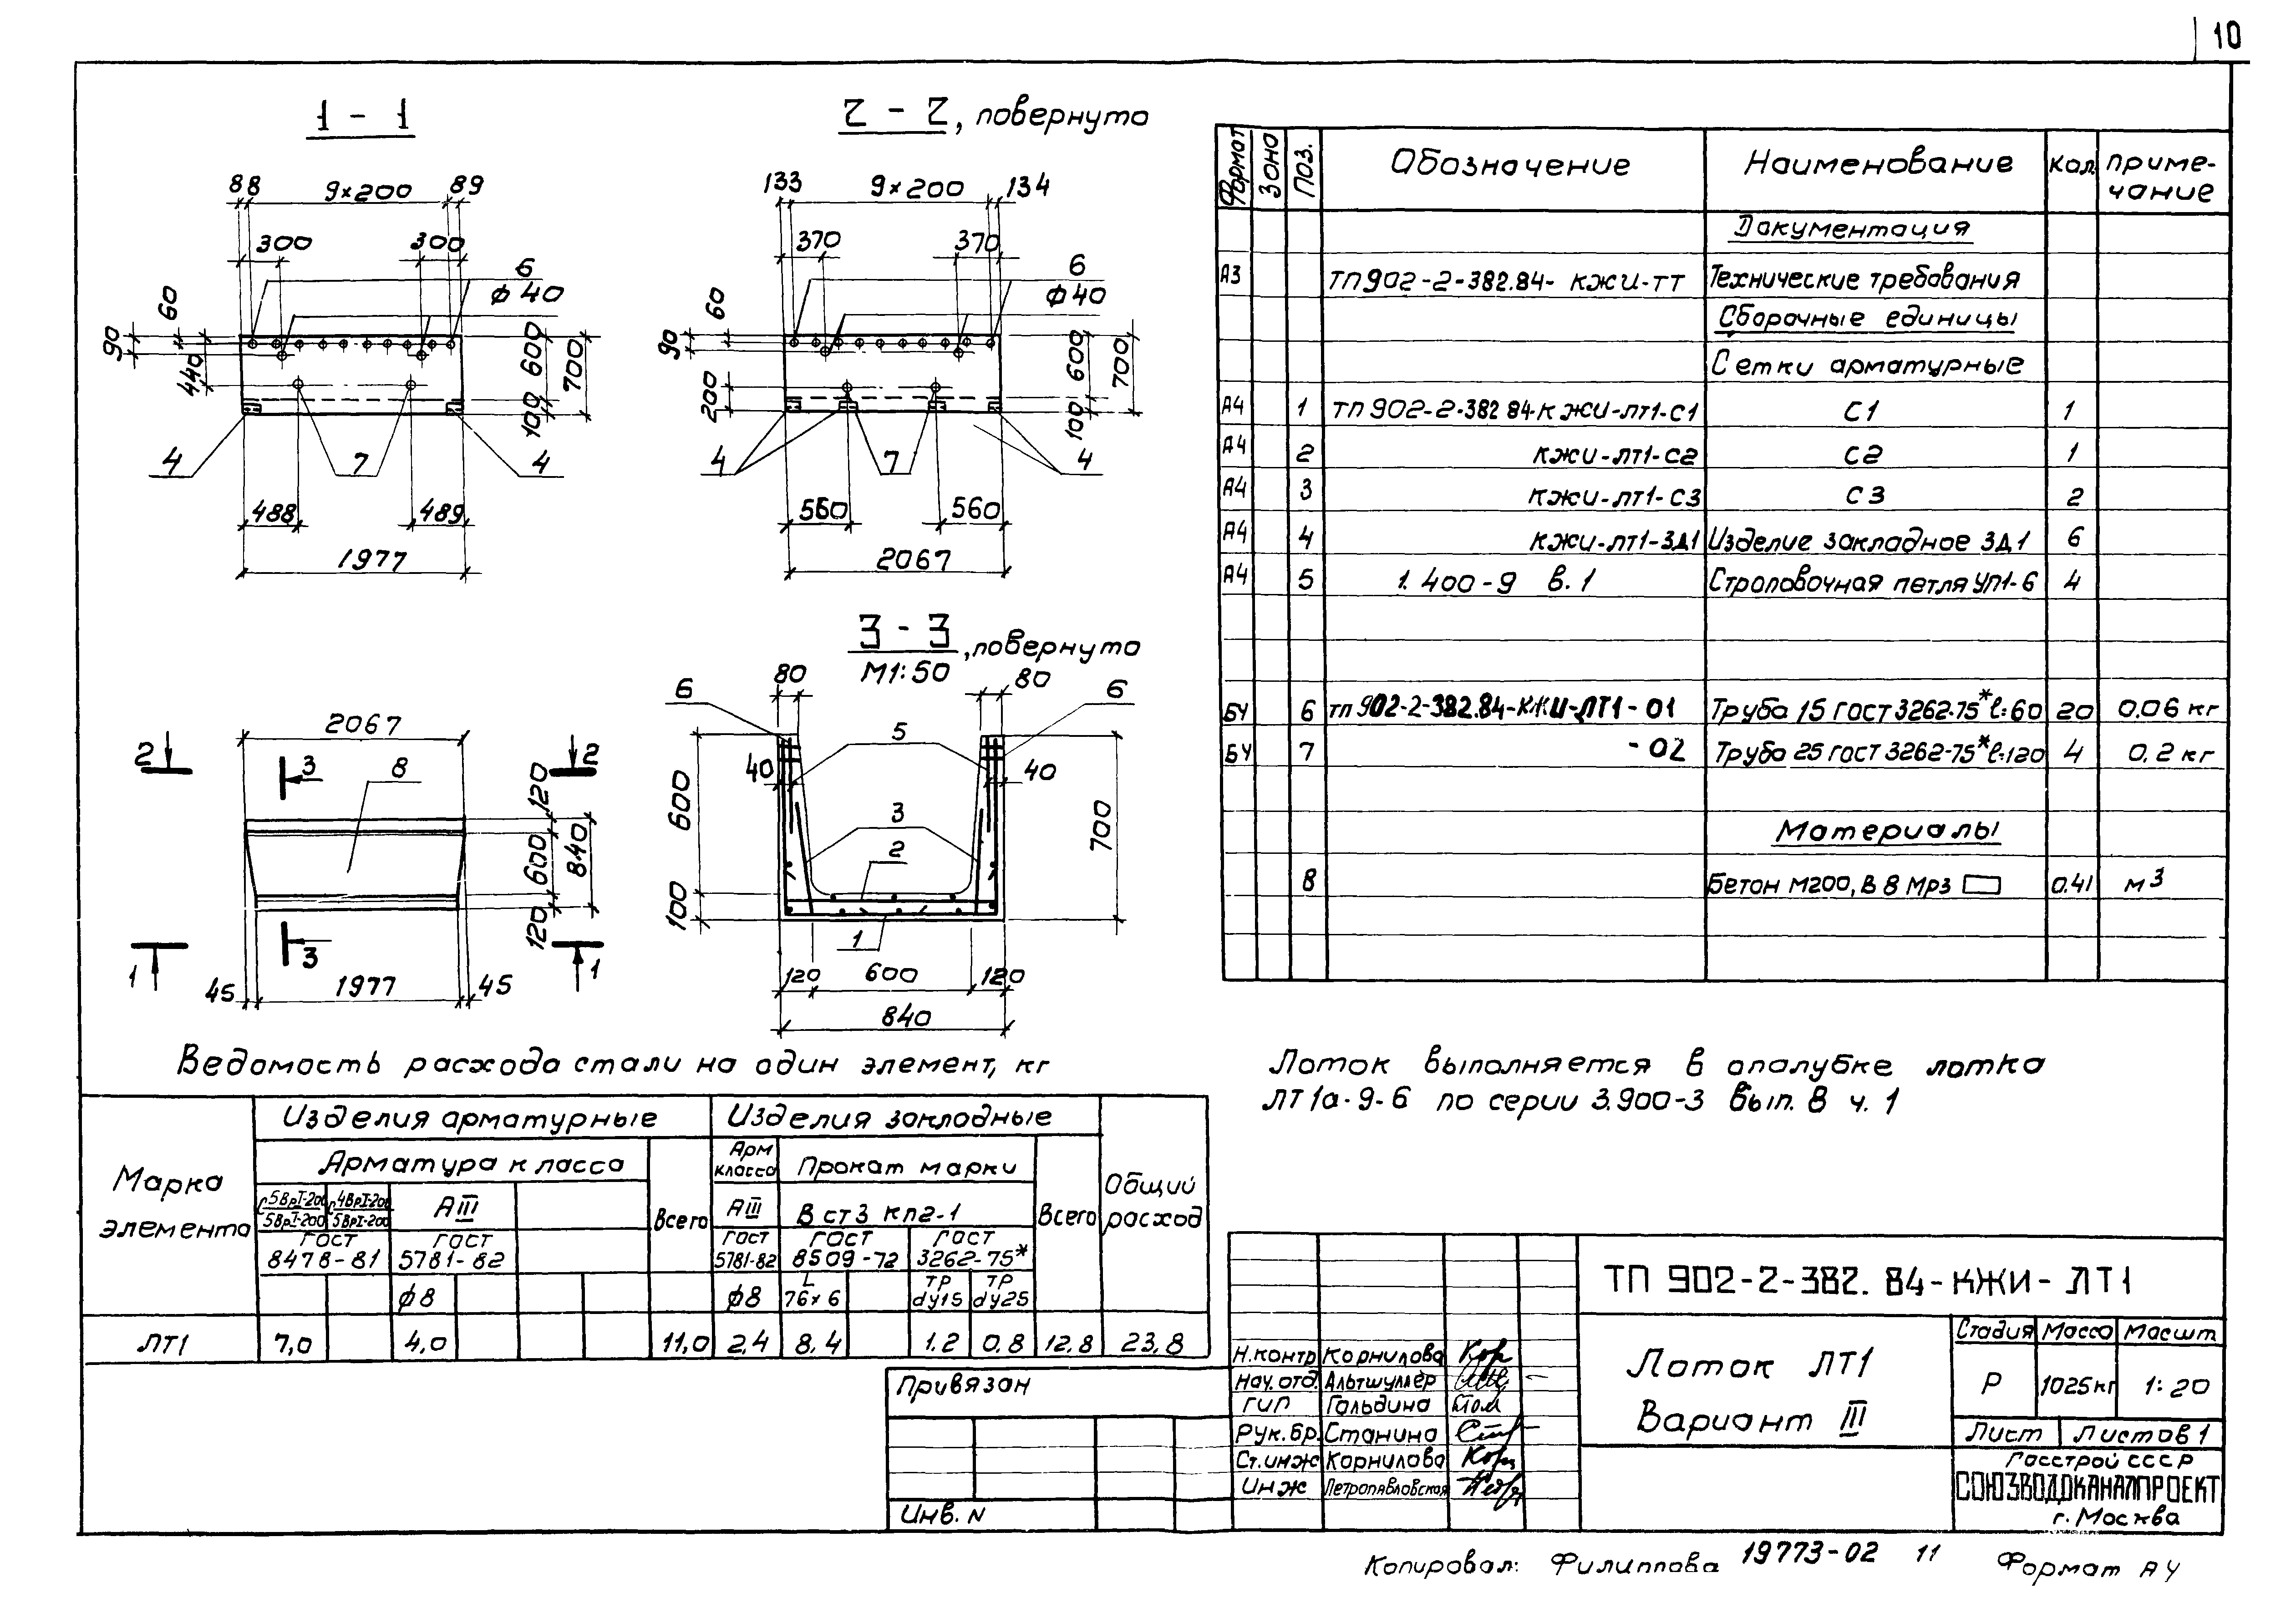 10
1 - 1
2 - 2, повернуто
88 9×200 89
300 300
6
ф 40
60
90
440
600
700
100
4 7 4
488 489
1977
133 9×200 134
370 370
6
ф 40
60
90
200
600
700
100
4 7 4
560 560
2067
3 - 3, повернуто
М1:50
80 80
6 6
5
40 40
600
700
3
2
100
1
120 600 120
840
2067
2 2
3 8
120
600
840
120
3
1 1
45 1977 45
Формат Зона Поз. Обозначение Наименование Кол. Приме-
чание
Документация
А3 ТП902-2-382.84- КЖИ-ТТ Технические требования
Сборочные единицы
Сетки арматурные
А4 1 ТП 902-2-382 84-КЖИ-ЛТ1-С1 С1 1
А4 2 КЖИ-ЛТ1-С2 С2 1
А4 3 КЖИ-ЛТ1-С3 С3 2
А4 4 КЖИ-ЛТ1-ЗД1 Изделие закладное ЗД1 6
А4 5 1.400-9 в.1 Строповочная петля УП1-6 4
БЧ 6 ТП 902-2-382.84-КЖИ-ЛТ1-01 Труба 15 ГОСТ 3262-75* ℓ=60 20 0.06 кг
БЧ 7 -02 Труба 25 ГОСТ 3262-75* ℓ=120 4 0,2 кг
Материалы
8 Бетон М200, В 8 Мрз 0.41 м3
Ведомость расхода стали на один элемент, кг
Марка элемента
Изделия арматурные Изделия закладные Общий расход
Арматура класса Всего Арм класса Прокат марки Всего
С 5ВрI-200/5ВрI-200 С 4ВрI-200/5ВрI-200 АIII АIII В ст3 кп2-1
ГОСТ 8478-81 ГОСТ 5781-82 ГОСТ 5781-82 ГОСТ 8509-72 ГОСТ 3262-75*
ф8 ф8 L 76×6 ТР dу15 ТР dу25
ЛТ1 7,0 4,0 11,0 2,4 8,4 1.2 0,8 12,8 23,8
Лоток выполняется в опалубке лотка
ЛТ1а-9-6 по серии 3.900-3 вып. 8 ч. 1
Привязан
Инв. N
ТП 902-2-382. 84-КЖИ- ЛТ1
Н.контр Корнилова
Нач. отд. Альтшуллер
ГИП Гольдина
Рук. бр. Станина
Ст.инж Корнилова
Инж Петропавловская
Лоток ЛТ1
Вариант III
Стадия Масса Масшт
Р 1025кг 1:20
Лист Листов 1
Госстрой СССР
СОЮЗВОДОКАНАЛПРОЕКТ
г. Москва
Копировал: Филиппова 19773-02 11 Формат А4